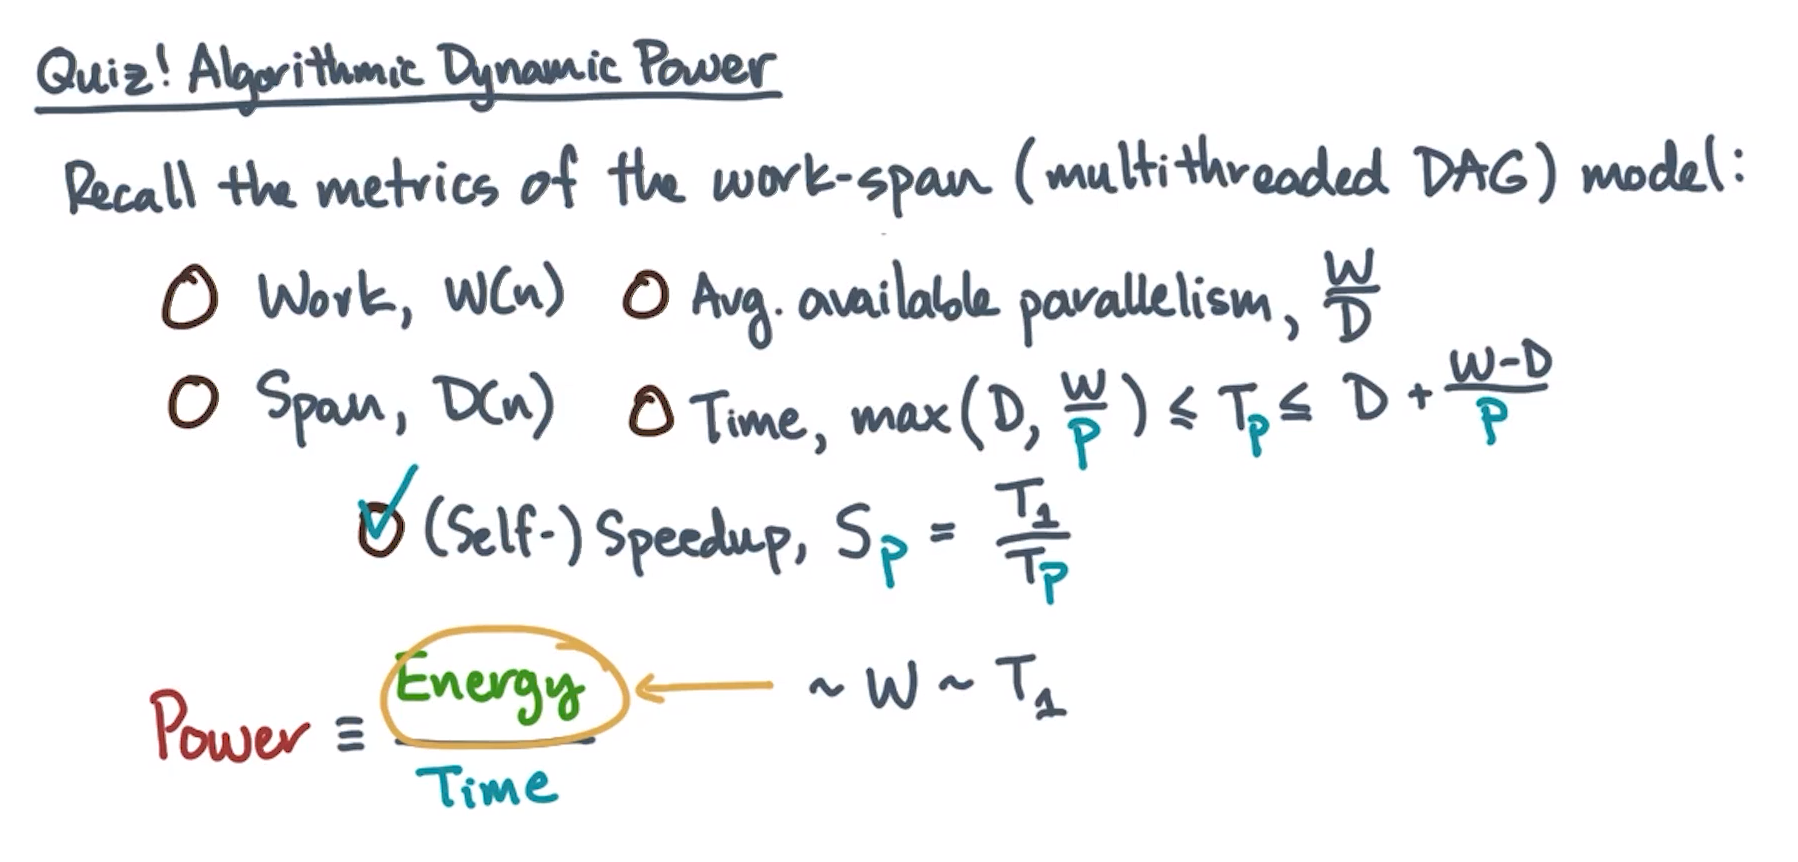 Quiz! Algorithmic Dynamic Power
Recall the metrics of the work-span (multithreaded DAG) model:
Work, W(n) Avg. available parallelism, W/D
Span, D(n) Time, max(D, W/P) ≤ T_P ≤ D + (W-D)/P
(Self-) Speedup, S_P = T_1/T_P
Power ≡ Energy/Time ← ~ W ~ T_1